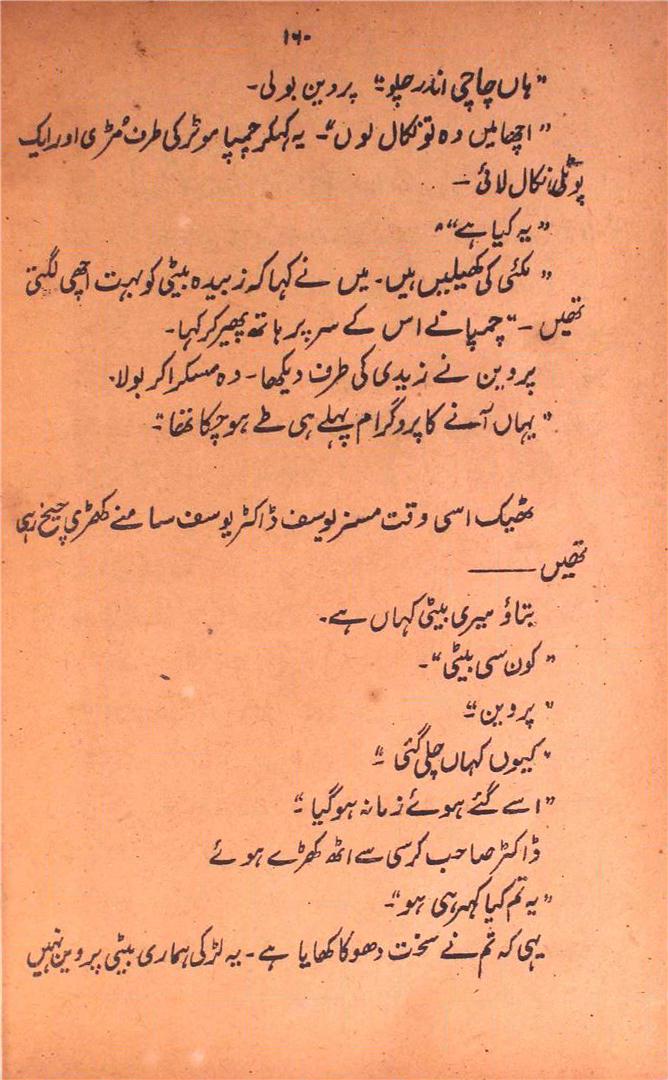 ۱۶۰
"ہاں چاچی اندر چلو"۔ پروین بولی۔
"اچھا میں وہ تو نکال لوں"۔ یہ کہکر چمپا موٹر کی طرف مُڑی اور ایک
پوٹلی نکال لائی ۔
"یہ کیا ہے"۔
"مکئی کی کھیلیں ہیں۔ میں نے کہا کہ زبیدہ بیٹی کو بہت اچھی لگتی
تھیں ۔" چمپا نے اس کے سر پر ہاتھ پھیر کر کہا۔
پروین نے زیدی کی طرف دیکھا۔ وہ مسکرا کر بولا۔
"یہاں آنے کا پروگرام پہلے ہی طے ہو چکا تھا"۔
ٹھیک اسی وقت مسز یوسف ڈاکٹر یوسف سامنے کھڑی چیخ رہی
تھیں ———
بتاؤ میری بیٹی کہاں ہے۔
"کون سی بیٹی"۔
"پروین"۔
"کیوں کہاں چلی گئی"۔
"اسے گئے ہوئے زمانہ ہو گیا"۔
ڈاکٹر صاحب کرسی سے اٹھ کھڑے ہوئے
"یہ تم کیا کہہ رہی ہو"۔
یہی کہ تم نے سخت دھوکا کھایا ہے۔ یہ لڑکی ہماری بیٹی پروین نہیں